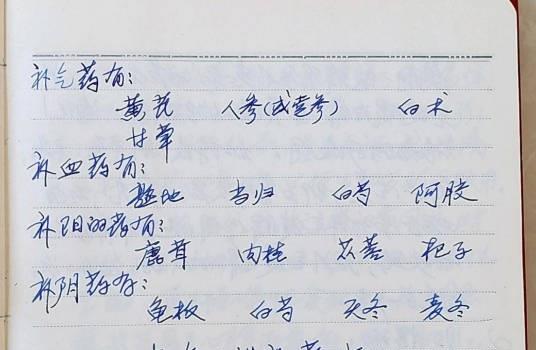 补气药有:
黄芪 人参(或党参) 白术
甘草
补血药有:
熟地 当归 白芍 阿胶
补阳的药有:
鹿茸 肉桂 苁蓉 杞子
补阴药有:
龟板 白芍 天冬 麦冬